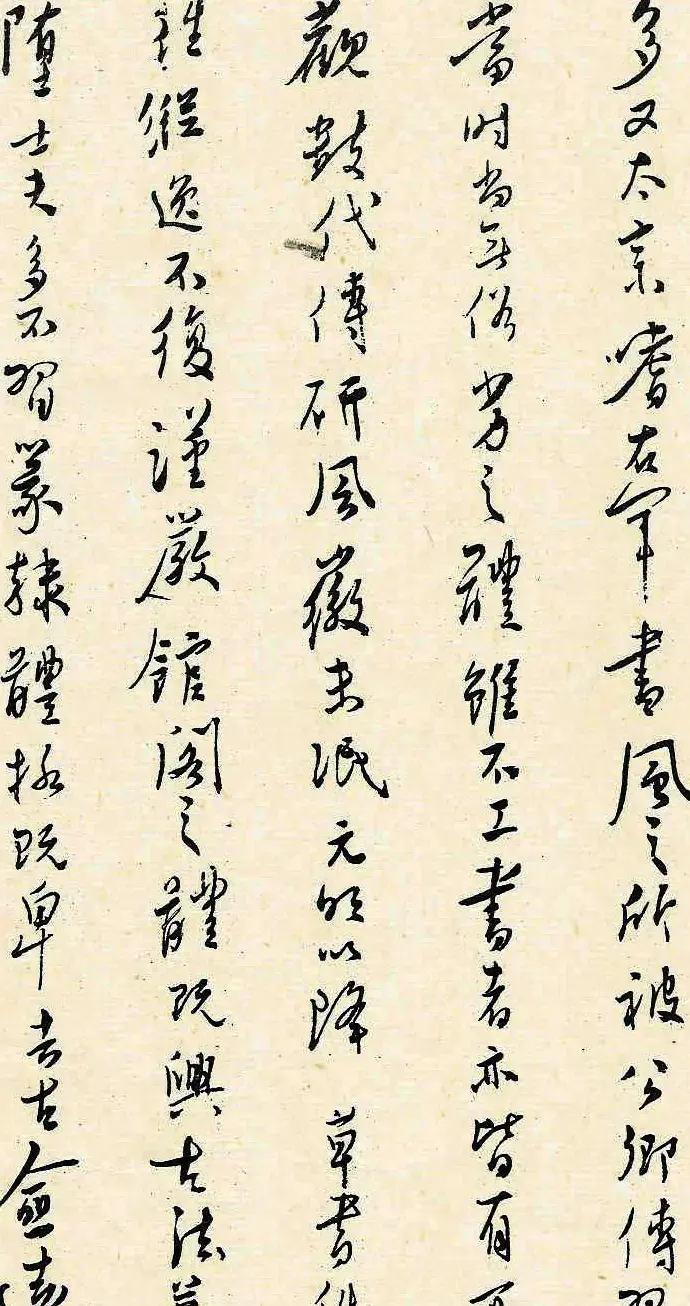 多又太宗嗜右軍書風之所被公卿傳習
當時尚無俗劣之體雖不工書者亦皆有可
觀數代傳研風徽未泯元明以降草書
雖縱逸不復謹嚴館閣之體既興古法
士夫多不習篆隸體格既卑去古愈遠